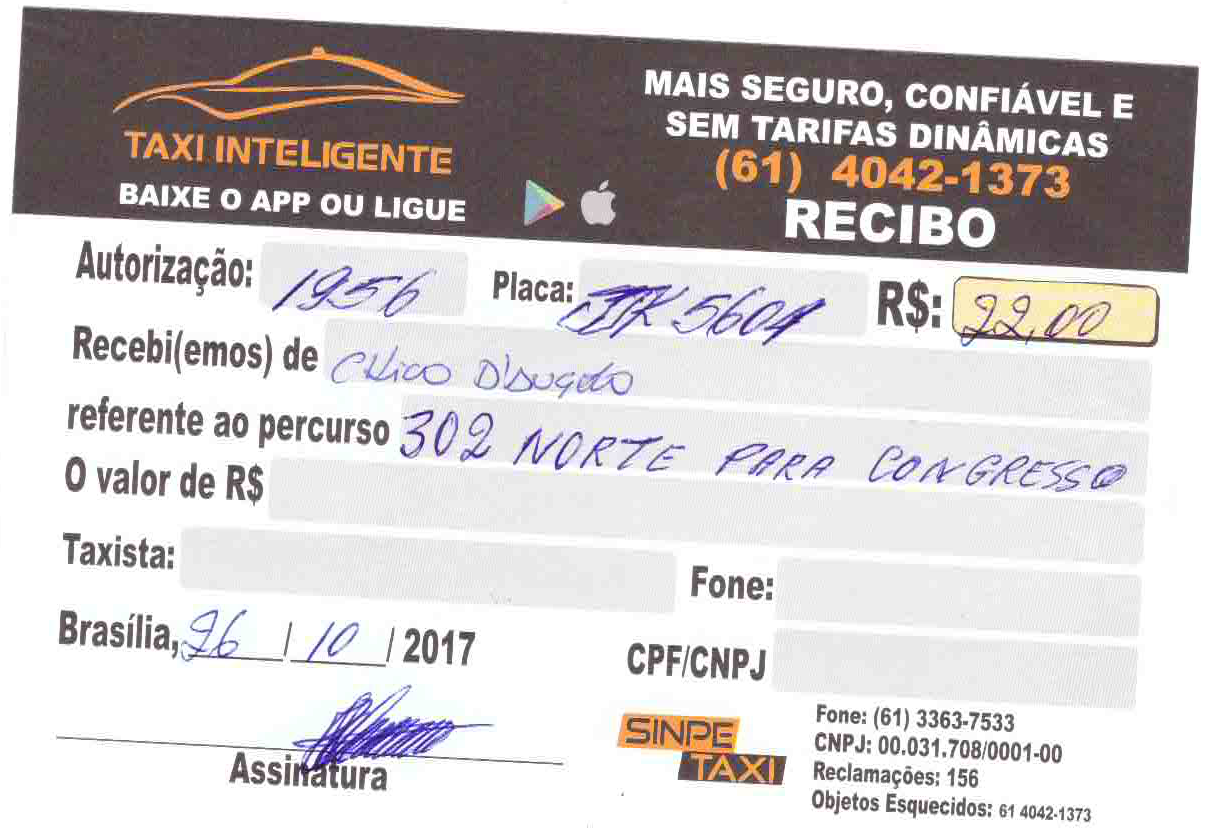 TAXI INTELIGENTE
BAIXE O APP OU LIGUE
MAIS SEGURO, CONFIÁVEL E
SEM TARIFAS DINÂMICAS
(61) 4042-1373
RECIBO
Autorização: 1956 Placa: JJK 5604 R$: 22,00
Recebi(emos) de Chico D'Angelo
referente ao percurso 302 NORTE PARA CONGRESSO
O valor de R$
Taxista:
Fone:
Brasília, 26 / 10 / 2017
CPF/CNPJ
Assinatura
SINPE
TAXI
Fone: (61) 3363-7533
CNPJ: 00.031.708/0001-00
Reclamações: 156
Objetos Esquecidos: 61 4042-1373